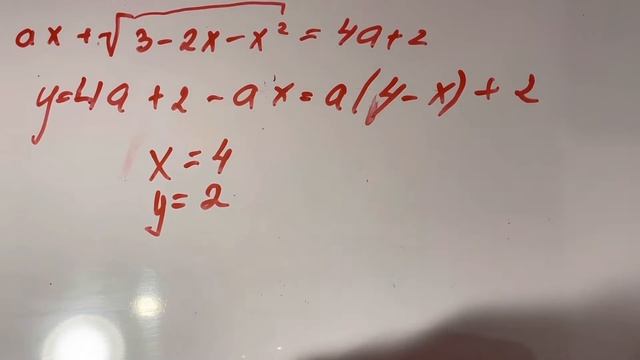 ax + √3-2x-x² = 4a+2
y=4a + 2 - ax = a(4-x) + 2
x = 4
y = 2